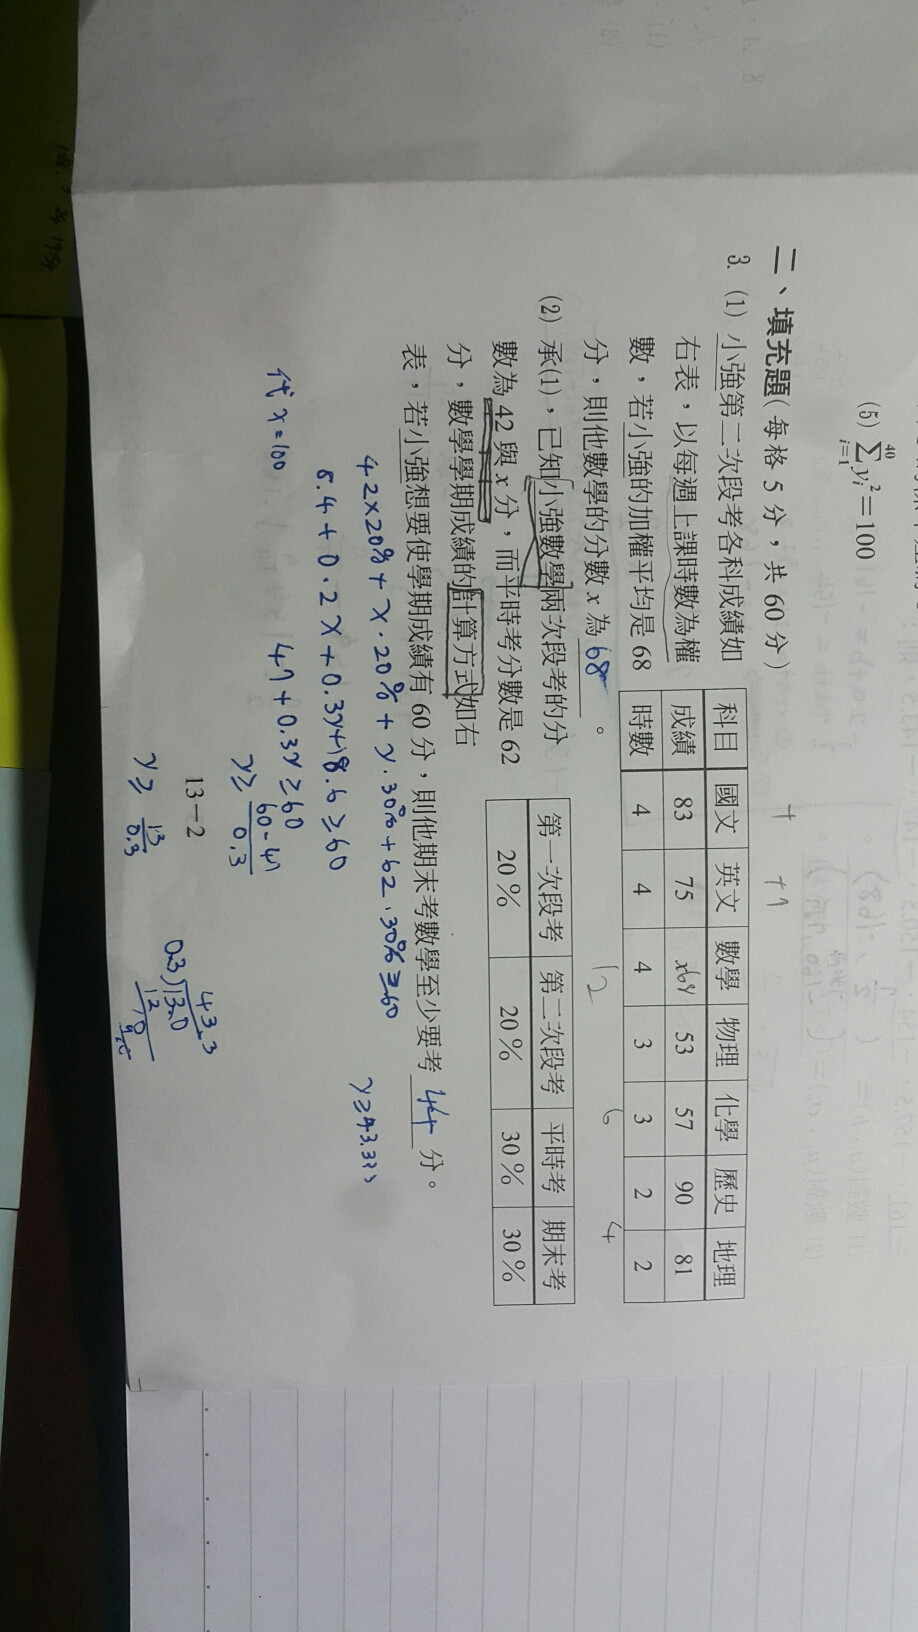 (5) 40 Σ i=1 yᵢ²=100
二、填充題(每格 5 分，共 60 分)
3. (1) 小強第二次段考各科成績如
右表，以每週上課時數為權
數，若小強的加權平均是 68
分，則他數學的分數 x 為 68 。
科目 國文 英文 數學 物理 化學 歷史 地理
成績 83 75 x 53 57 90 81
時數 4 4 4 3 3 2 2
12 6 4
(2) 承(1)，已知小強數學兩次段考的分
數為 42 與 x 分，而平時考分數是 62
分，數學學期成績的計算方式如右
表，若小強想要使學期成績有 60 分，則他期末考數學至少要考 44 分。
第一次段考 第二次段考 平時考 期末考
20% 20% 30% 30%
42×20%+x·20%+y·30%+62·30%≥60
8.4+0.2x+0.3y+18.6≥60
代 x=100
47+0.3y≥60
y≥ 60-47 / 0.3
y≥ 13 / 0.3
y≥43.333
13－2
43.3
0.3)13.0
12
10